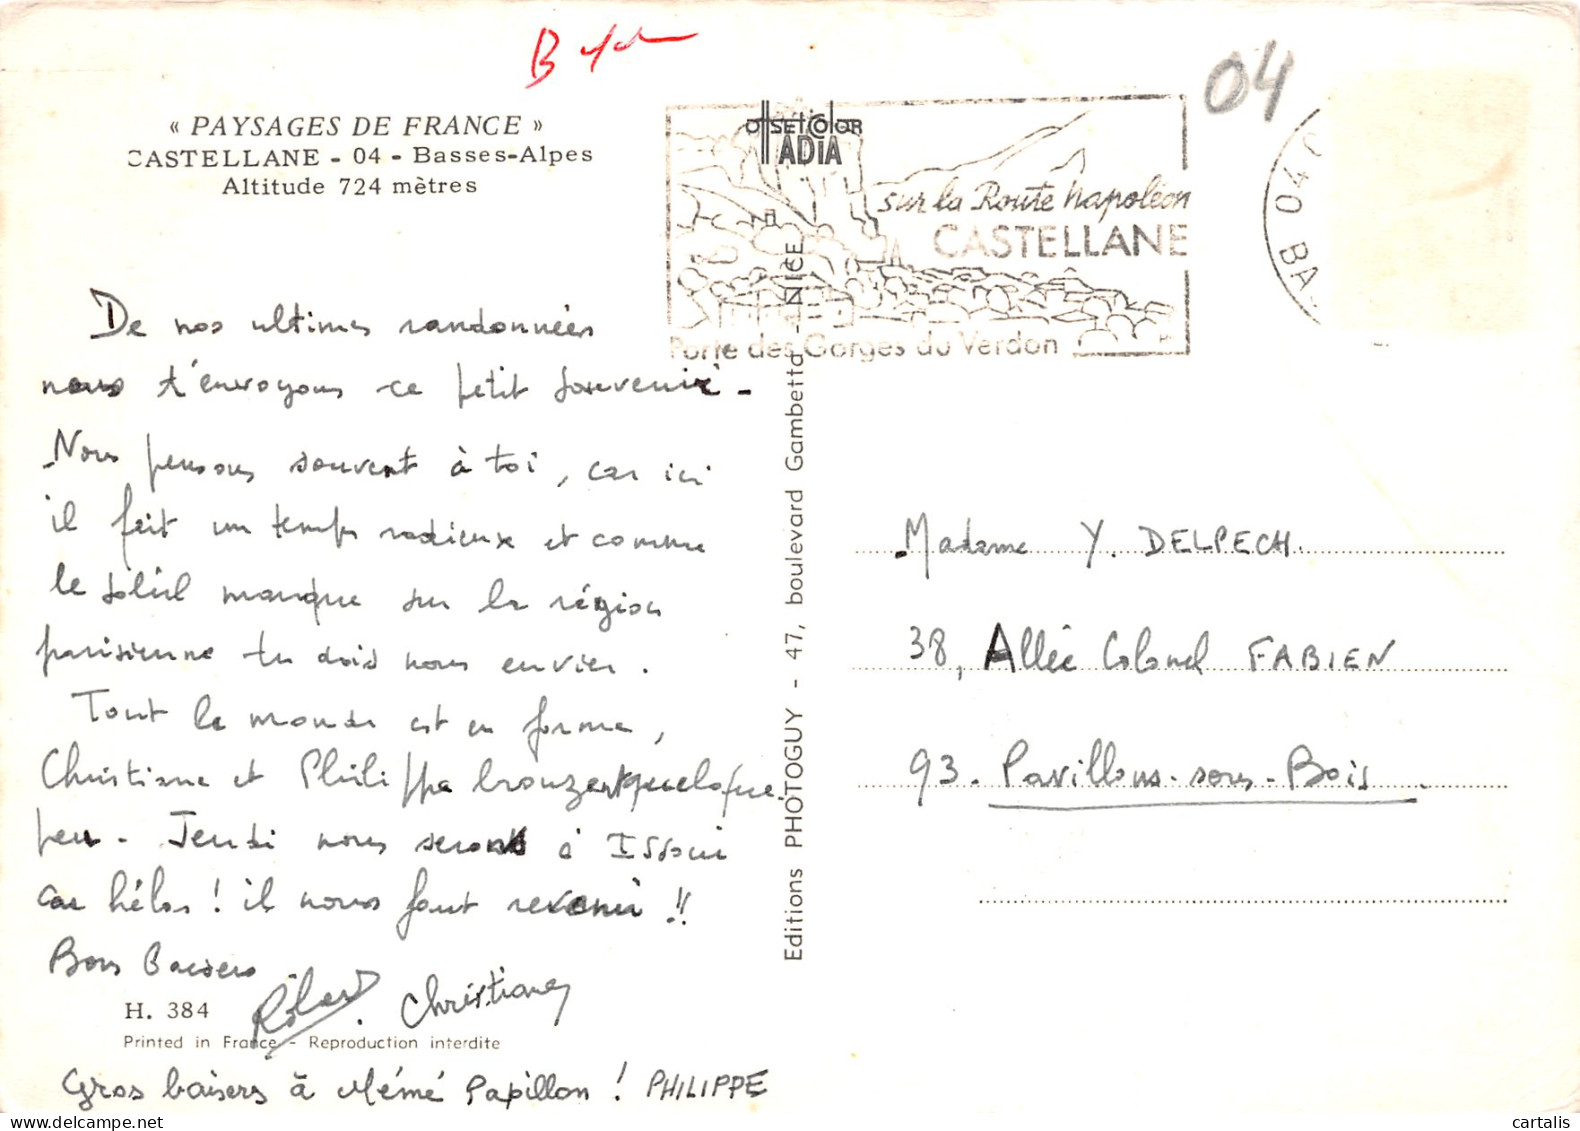 « PAYSAGES DE FRANCE »
CASTELLANE - 04 - Basses-Alpes
Altitude 724 mètres
04
OffSETCOlOR
ADIA
sur la Route Napoléon
CASTELLANE
Porte des Gorges du Verdon
04
BA
De nos ultimes randonnées
nous t'envoyons ce petit souvenir -
Nous pensons souvent à toi, car ici
il fait un temps radieux et comme
le soleil manque sur la région
parisienne tu dois nous envier.
Tout le monde est en forme,
Christiane et Philippe bronzent quelque
peu. Jeudi nous serons à Issoui
car hélas ! il nous faut revenir !!
Bons baisers
Christiane
H. 384
Printed in France - Reproduction interdite
Gros baisers à Mémé Papillon ! PHILIPPE
Editions PHOTOGUY - 47, boulevard Gambetta - NICE
Madame Y. DELPECH
38, Allée Colonel FABIEN
93. Pavillons-sous-Bois
cartalis
www.delcampe.net